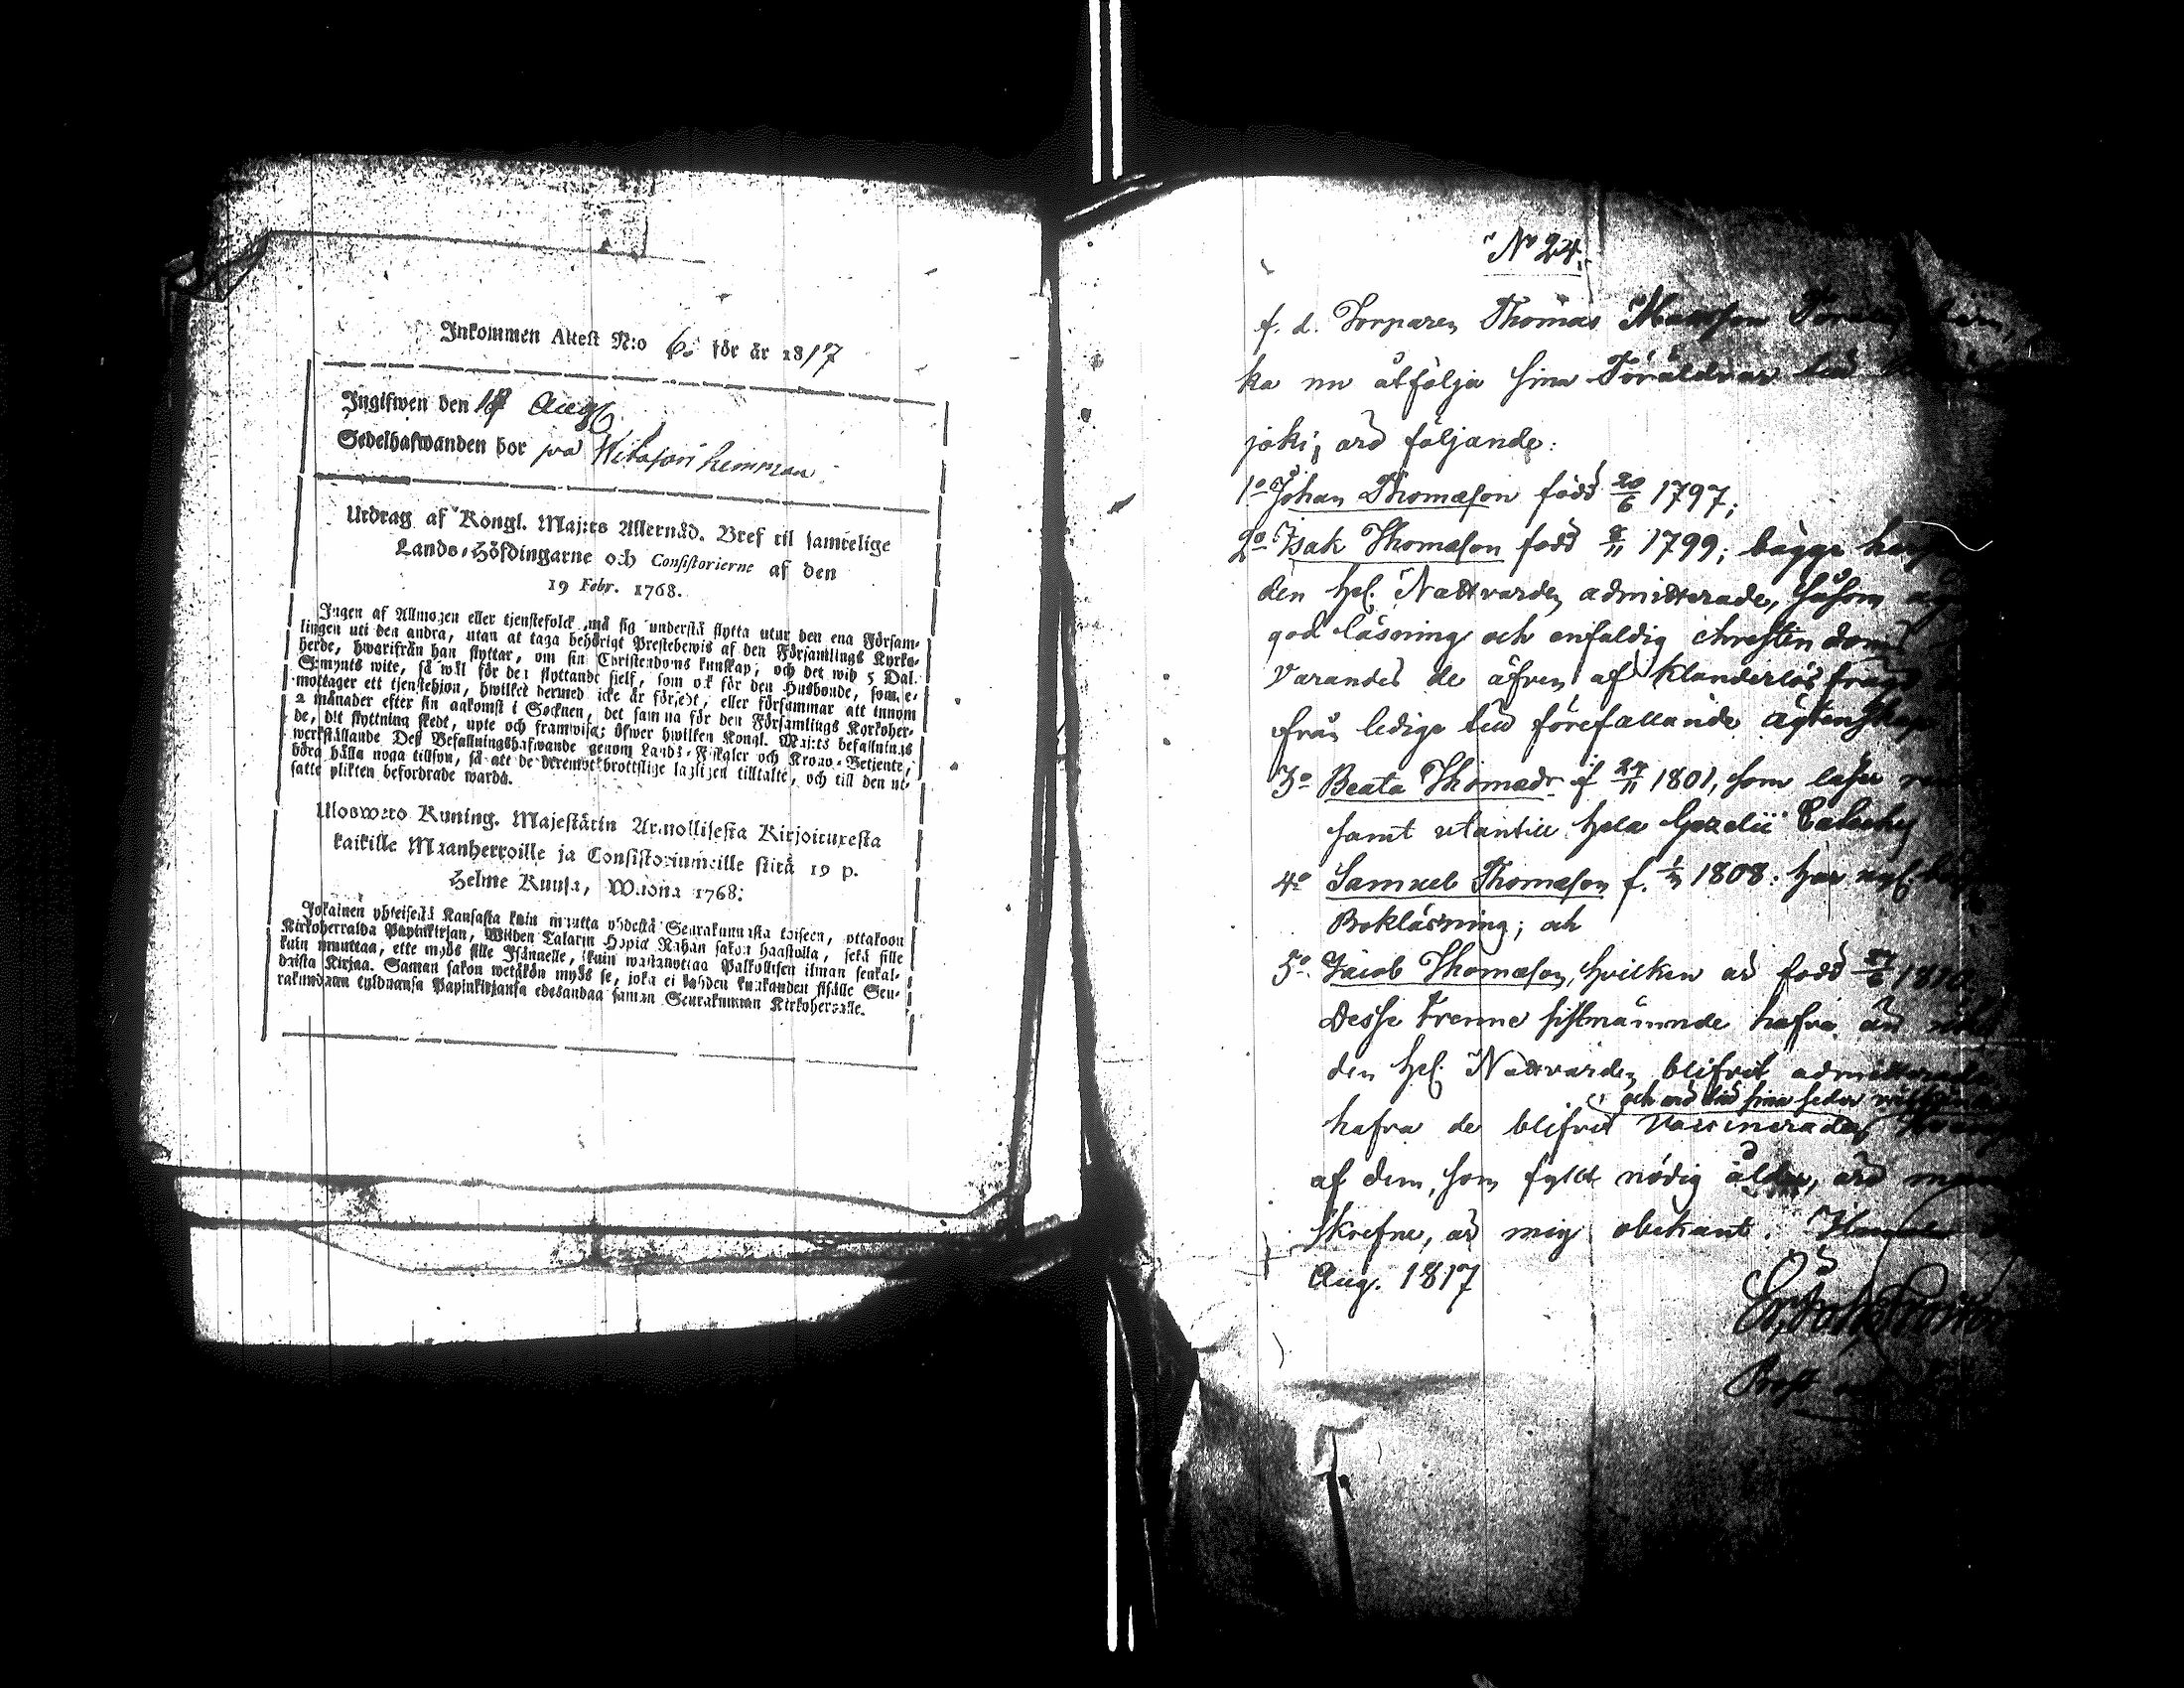 Inkommen Attest N:o 6. för år 1817
Ingifwen den 18 Aug
Sedelhafwanden bor på hemman
Utdrag af Kongl. Maj:ts Allernåd. Bref til samtelige
Lands-Höfdingarne och Consistorierne af den
19 Febr. 1768.
Ingen af Allmogen eller tjenstefolck må sig understå flytta utur den ena Försam-
lingen uti den andra, utan at taga behörigt Prestebewis af den Församlings Kyrko-
herde, hwarifrån han flyttar, om sin Christendoms kunskap, och det wid 5 Dal.
S:mynts wite, så wäl för den flyttande sielf, som ock för den Husbonde, som e-
mottager ett tjenstehjon, hwilket dermed icke är försedt, eller försummar att innom
2 månader efter sin ankomst i Socknen, det samma för den Församlings Kyrkoher-
de, dit flyttning skedt, upte och framwisa; öfwer hwilken Kongl. Maj:ts befallnings
werkställande Deß Befallningshafwande genom Lands-Fiskaler och Krono-Betjente,
böra hålla noga tillsyn, så att de deremot brottslige lagligen tilltalte, och till den ut-
satte plikten befordrade warda.
Uloswero Kuning. Majestätin Armollisesta Kirjoituxesta
kaikille Maanherroille ja Consistoriumeille siitä 19 p.
Helme Kuusa, Wuona 1768:
Jokainen yhteisestä Kansasta kuin muutta yhdestä Seurakunnasta toiseen, ottakoon
Kirkoherralda Papinkirjan, Wiiden Talarin Hopia Rahan sakon haastolla, sekä sille
kuin muuttaa, ette myös sille Isännelle, kuin wastanottaa Palkollisen ilman senkal-
daista Kirjaa. Saman sakon wetäkön myös se, joka ei kahden kuukauden sisälle Seu-
rakundaan tulduansa Papinkirjansa edesandaa saman Seurakunnan Kirkoherralle.
N° 24.
f. d. Torparen Thomas
ka nu åtfölja sina Föräldrar till
joki, äro följande:
1° Johan Thomasson född 20/6 1797;
2° Isak Thomasson född 8/11 1799; bägge
den hel. Nattvarden admitterade, såsom
god läsning och enfaldig christendoms
Varandes de äfven af klanderlös frägd
från ledige till förefallande ägtenskap
3° Beata Thomædr f 24/11 1801, som läser
samt utantill hela Gezelii
4° Samuel Thomasson f. 1808. har
Bokläsning; och
5° Jacob Thomasson, hvilken är född 1810
Desse trenne sistnämnde hafva än
den hel. Nattvarden blifvit admitterade
och äro till sina seder
hafva de blifvit Vaccinerade
af dem, som fyllt nödig ålder, äro
skrefne, är mig obekant.
Aug. 1817
Prost